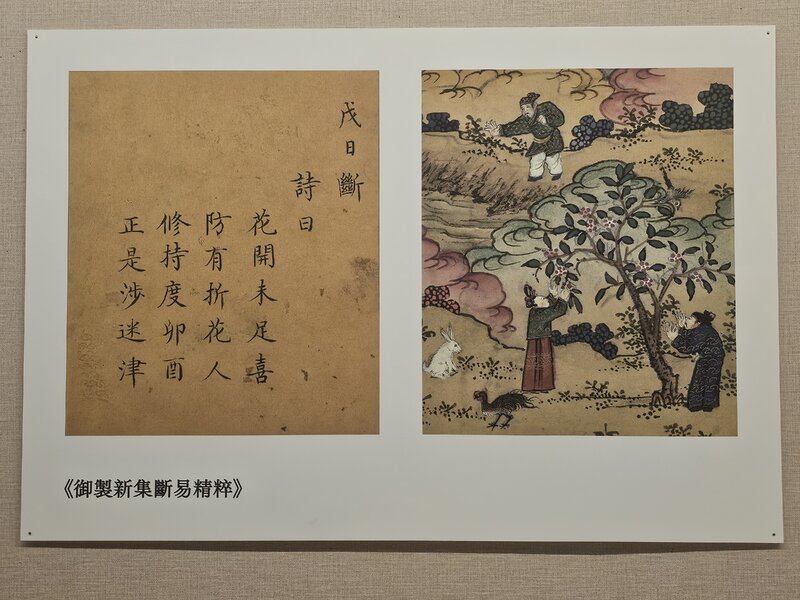 戊日斷
詩曰
花開未足喜
防有折花人
修持度卯酉
正是涉迷津
《御製新集斷易精粹》